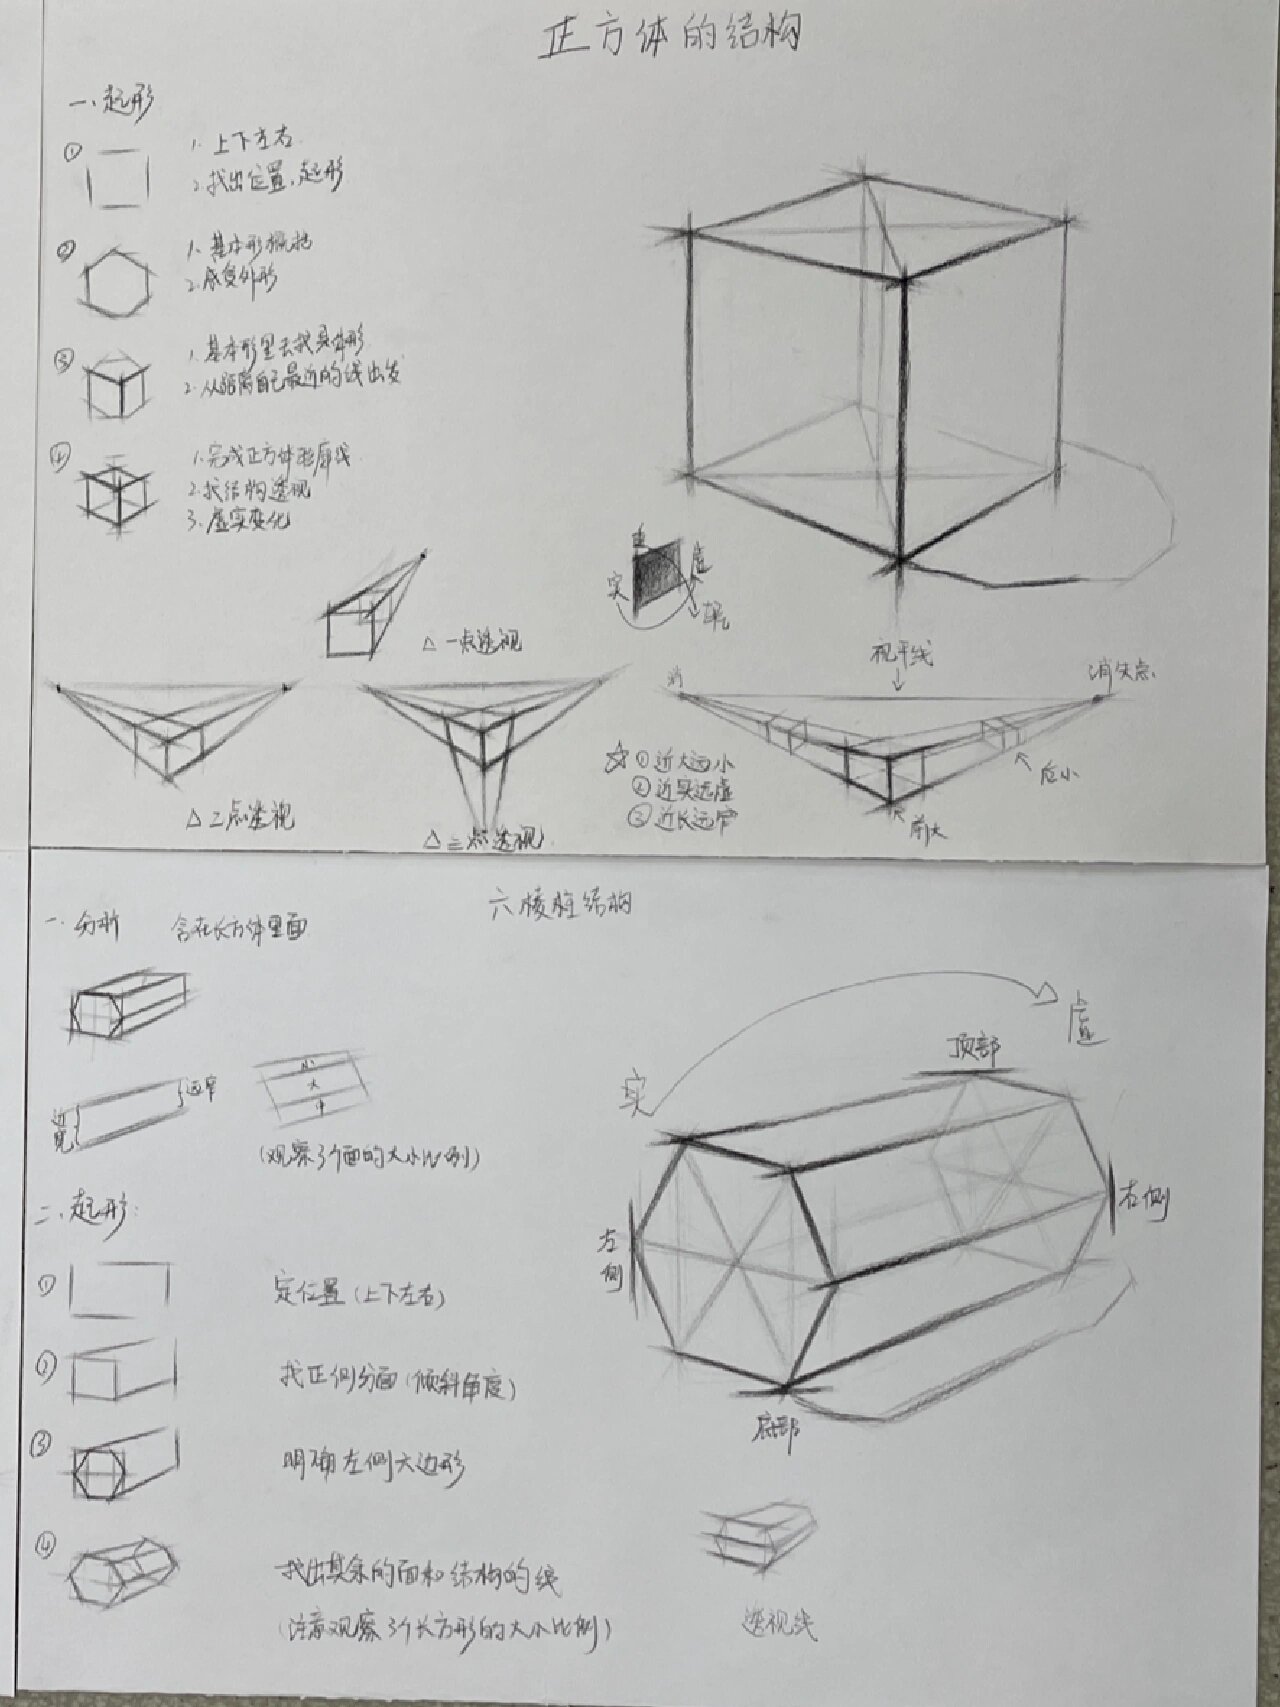 正方体的结构
一、起形
① 1. 上下左右
2. 找出位置、起形
② 1. 基本形概括
2. 感受外形
③ 1. 基本形里去找具体形
2. 从距离自己最近的线出发
④ 1. 完成正方体轮廓线
2. 找结构透视
3. 虚实变化
实
虚
△ 一点透视
视平线
消
消失点
△ 二点透视
△ 三点透视
☆ ① 近大远小
② 近实远虚
③ 近长远窄
后小
前大
六棱柱结构
一、分析 含在长方体里面
近宽
远窄
小
大
中
(观察3个面的大小比例)
实
虚
顶部
左侧
右侧
底部
二、起形:
① 定位置(上下左右)
② 找正侧分面(倾斜角度)
③ 明确左侧六边形
④ 找出其余的面和结构的线
(注意观察3个长方形的大小比例)
透视线